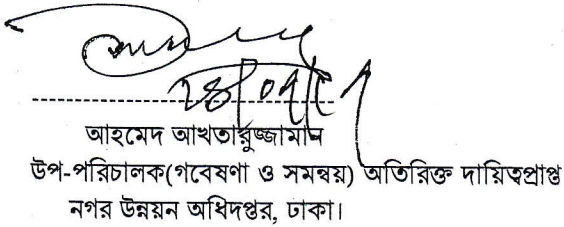 আহমেদ আখতারুজ্জামান
উপ-পরিচালক(গবেষণা ও সমন্বয়) অতিরিক্ত দায়িত্বপ্রাপ্ত
নগর উন্নয়ন অধিদপ্তর, ঢাকা।